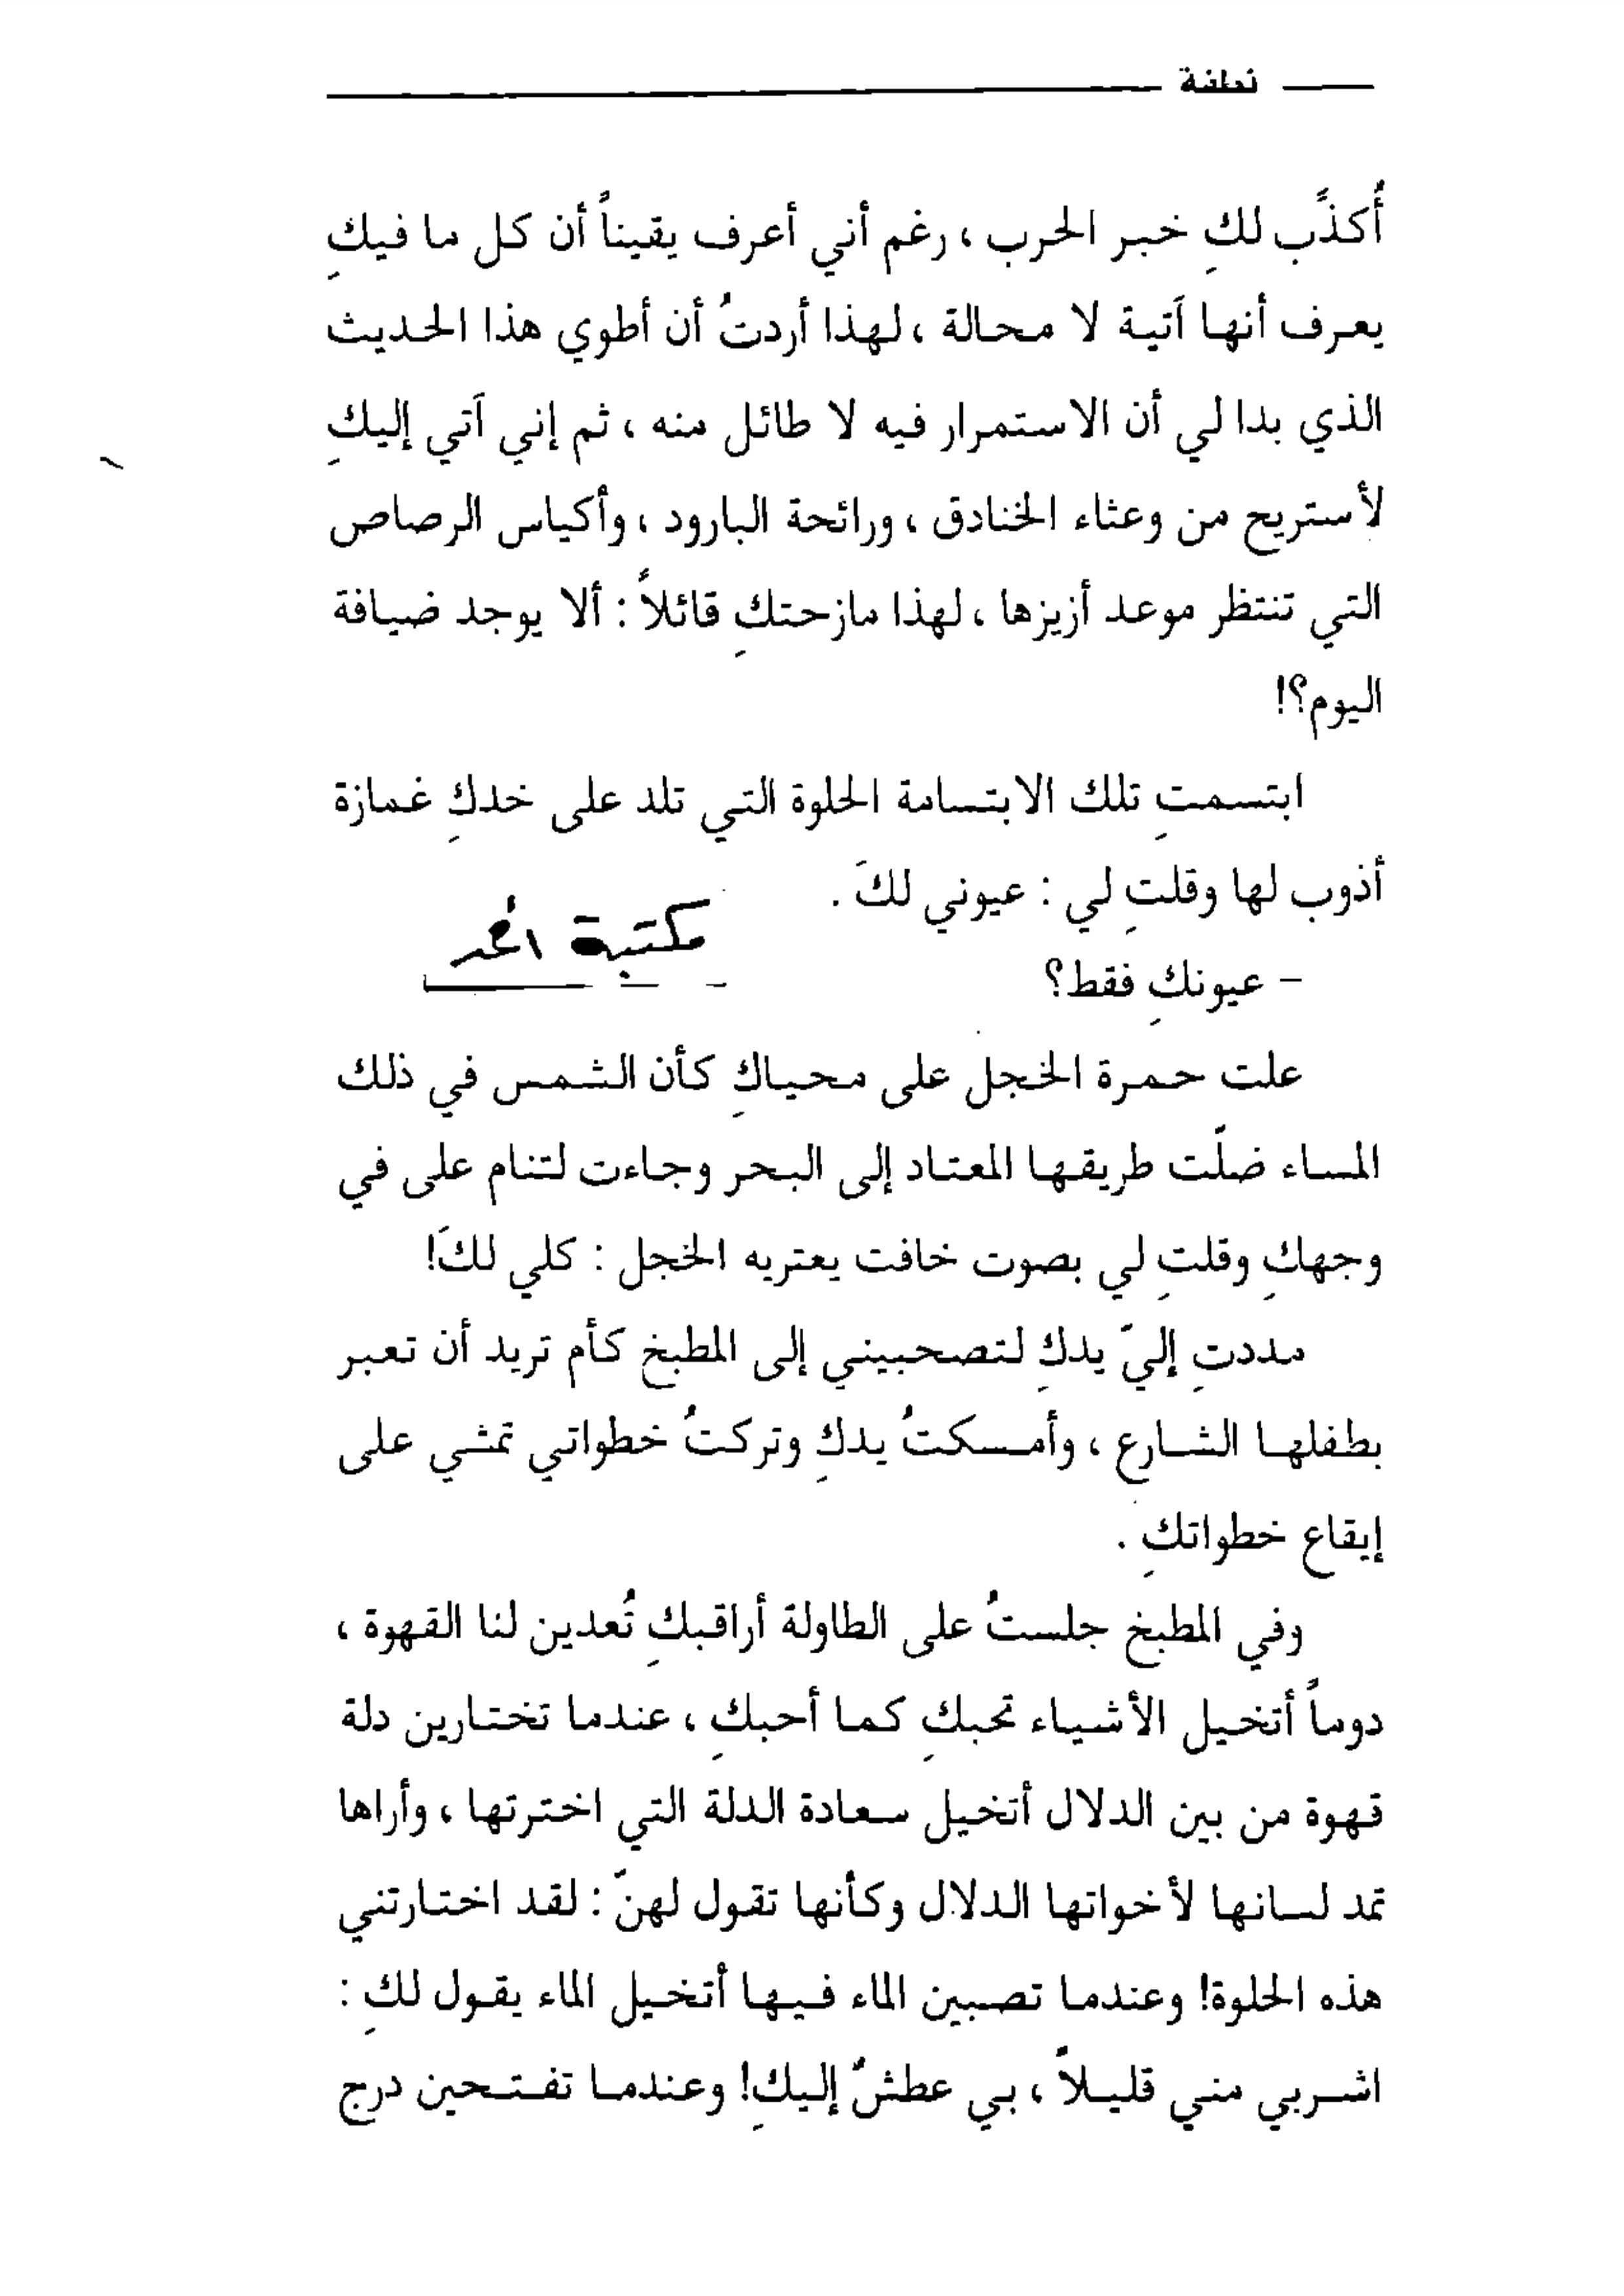 نطفة
أُكذّب لكِ خبر الحرب ، رغم أني أعرف يقيناً أن كل ما فيكِ
يعرف أنها آتية لا محالة ، لهذا أردتُ أن أطوي هذا الحديث
الذي بدا لي أن الاستمرار فيه لا طائل منه ، ثم إني آتي إليكِ
لأستريح من وعثاء الخنادق ، ورائحة البارود ، وأكياس الرصاص
التي تنتظر موعد أزيزها ، لهذا مازحتكِ قائلاً : ألا يوجد ضيافة
اليوم؟!
ابتسمتِ تلك الابتسامة الحلوة التي تلد على خدكِ غمازة
أذوب لها وقلتِ لي : عيوني لكَ .
مكتبة
– عيونكِ فقط؟
علت حمرة الخجل على محياكِ كأن الشمس في ذلك
المساء ضلّت طريقها المعتاد إلى البحر وجاءت لتنام على في
وجهكِ وقلتِ لي بصوت خافت يعتريه الخجل : كلي لكَ!
مددتِ إليّ يدكِ لتصحبيني إلى المطبخ كأم تريد أن تعبر
بطفلها الشارع ، وأمسكتُ يدكِ وتركتُ خطواتي تمشي على
إيقاع خطواتكِ .
وفي المطبخ جلستُ على الطاولة أراقبكِ تُعدين لنا القهوة ،
دوماً أتخيل الأشياء تحبكِ كما أحبكِ ، عندما تختارين دلة
قهوة من بين الدلال أتخيل سعادة الدلة التي اخترتها ، وأراها
تمد لسانها لأخواتها الدلال وكأنها تقول لهنّ : لقد اختارتني
هذه الحلوة! وعندما تصبين الماء فيها أتخيل الماء يقول لكِ :
اشربي مني قليلاً ، بي عطشٌ إليكِ! وعندما تفتحين درج